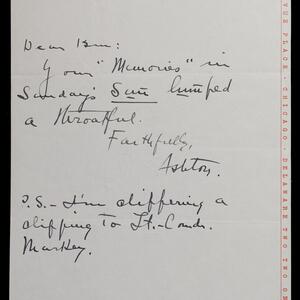 Dear Ism:
Your "Memories" in
Sunday's Sun lumped
a throatful.
Faithfully,
Ashton.
P.S.— I'm cliffering a
clipping to Lt.-Comdr.
Markey.
VUE PLACE · CHICAGO · DELAWARE TWO TWO O